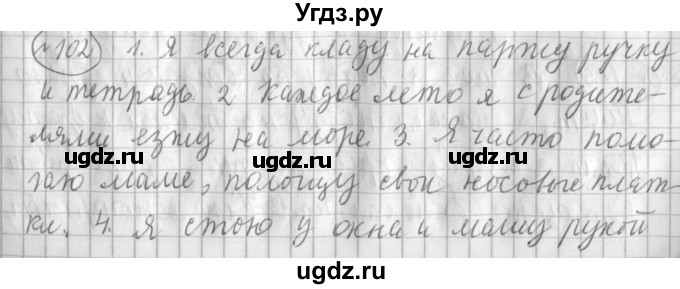 Угдз.ру
№102 1. Я всегда кладу на парту ручку
и тетрадь. 2 Каждое лето я с родите-
лями езжу на море. 3. Я часто помо-
ugdz.ru ugdz.ru ugdz.ru
гаю маме, полощу свои носовые плат-
ки. 4. Я стою у окна и машу рукой
ugdz.ru
ugdz.ru